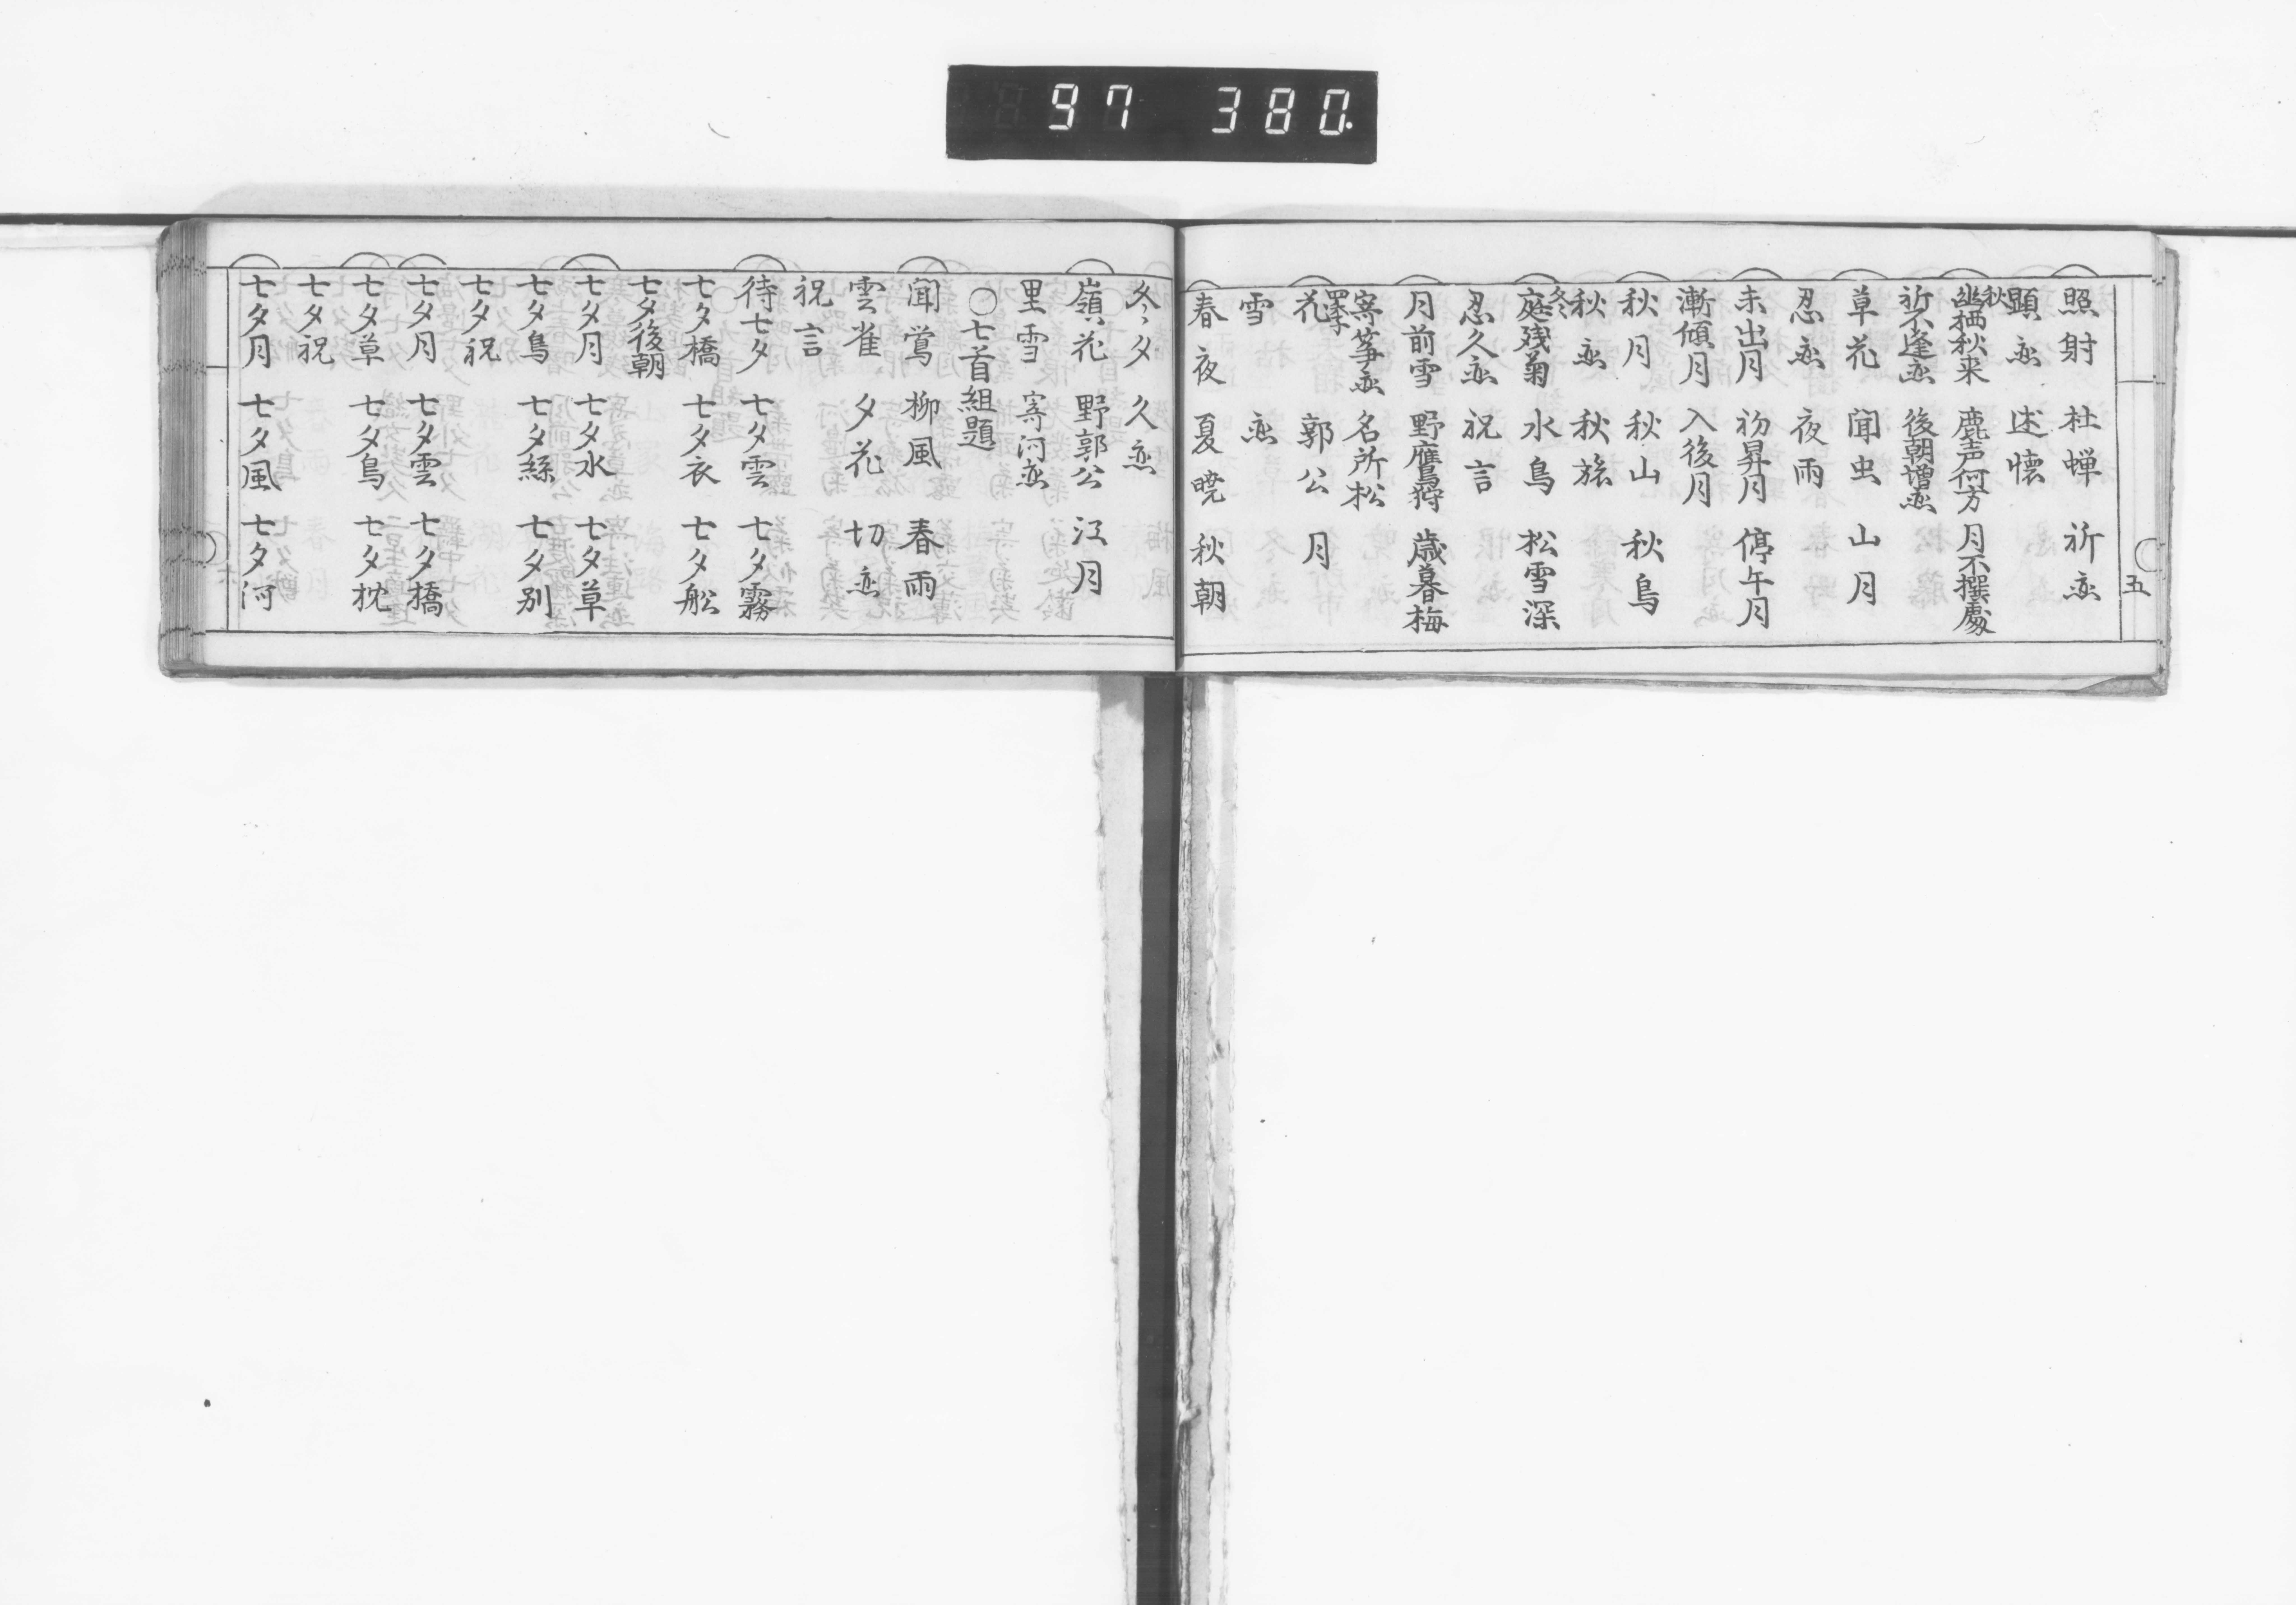 97 380.
五
照射 杜蝉 祈恋
顕恋 述懐
秋
幽栖秋来 鹿声何方 月不撰處
祈不逢恋 後朝増恋
草花 聞虫 山月
忍恋 夜雨
未出月 初昇月 停午月
漸傾月 入後月
秋月 秋山 秋鳥
秋恋 秋旅
冬
庭残菊 水鳥 松雪深
忍久恋 祝言
月前雪 野鷹狩 歳暮梅
寄箏恋 名所松
花 郭公 月
雪 恋
春夜 夏暁 秋朝
冬夕 久恋
嶺花 野郭公 江月
里雪 寄河恋
○七首組題
聞鴬 柳風 春雨
雲雀 夕花 切恋
祝言
待七夕 七夕雲 七夕霧
七夕橋 七夕衣 七夕舩
七夕後朝
七夕月 七夕水 七夕草
七夕鳥 七夕絲 七夕別
七夕祝
七夕月 七夕雲 七夕橋
七夕草 七夕鳥 七夕枕
七夕祝
七夕月 七夕風 七夕河